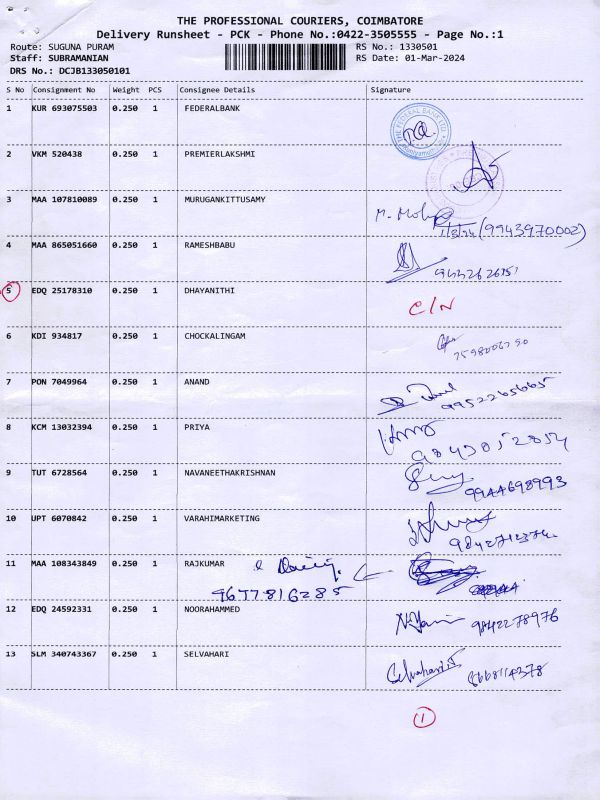 THE PROFESSIONAL COURIERS, COIMBATORE
Delivery Runsheet - PCK - Phone No.:0422-3505555 - Page No.:1
Route: SUGUNA PURAM RS No.: 1330501
Staff: SUBRAMANIAN RS Date: 01-Mar-2024
DRS No.: DCJB133050101
S No Consignment No Weight PCS Consignee Details Signature
1 KUR 693075503 0.250 1 FEDERALBANK
THE FEDERAL BANK LTD.
2 VKM 520438 0.250 1 PREMIERLAKSHMI
3 MAA 107810089 0.250 1 MURUGANKITTUSAMY
1/3/24 (9943970002)
4 MAA 865051660 0.250 1 RAMESHBABU
5 EDQ 25178310 0.250 1 DHAYANITHI C/N
6 KDI 934817 0.250 1 CHOCKALINGAM
7 PON 7049964 0.250 1 ANAND
9952265665
8 KCM 13032394 0.250 1 PRIYA
9843052854
9 TUT 6728564 0.250 1 NAVANEETHAKRISHNAN
9944698993
10 UPT 6070842 0.250 1 VARAHIMARKETING
11 MAA 108343849 0.250 1 RAJKUMAR
9677816285
12 EDQ 24592331 0.250 1 NOORAHAMMED
9842278976
13 SLM 340743367 0.250 1 SELVAHARI
Selvahari.S 8668114378
1